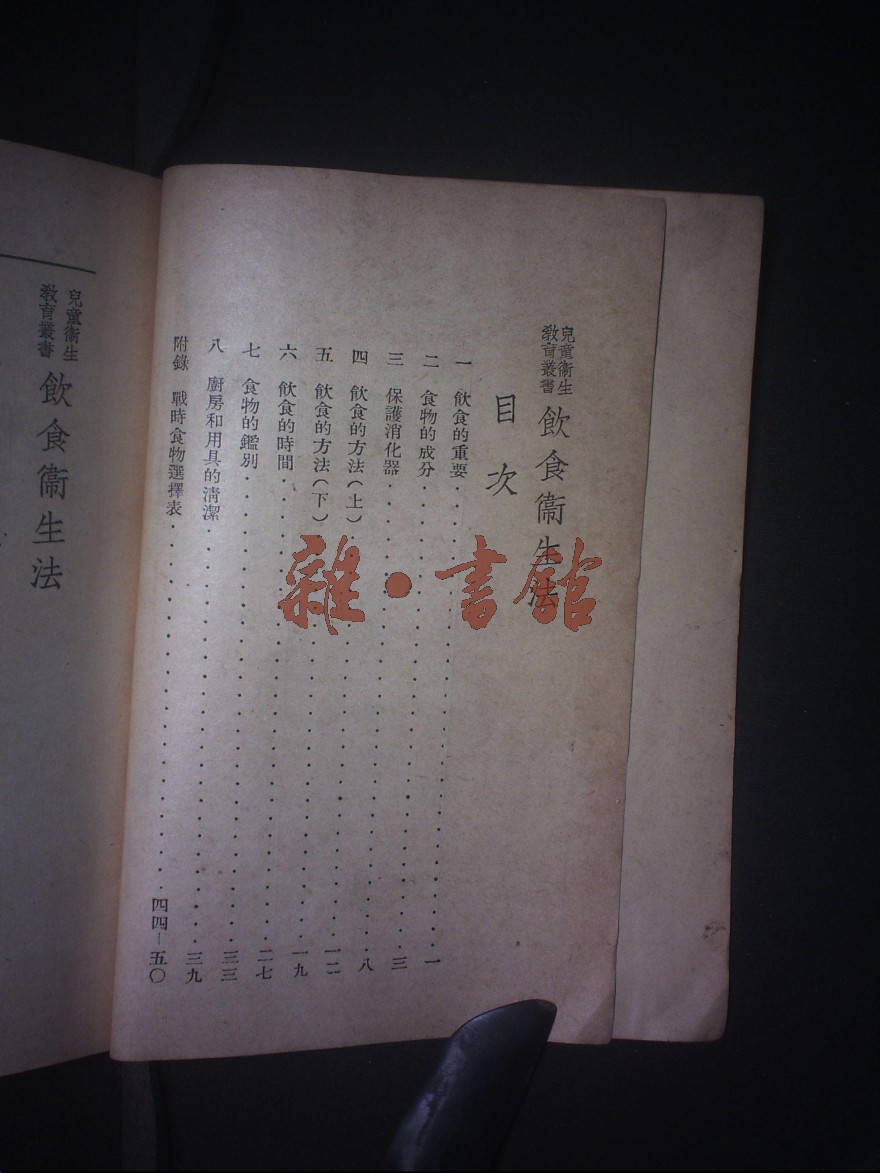 兒童衞生
教育叢書
飲食衞生法
目次
一 飲食的重要 一
二 食物的成分 三
三 保護消化器 八
四 飲食的方法(上) 一二
五 飲食的方法(下) 一九
六 飲食的時間 二七
七 食物的鑑別 三三
八 廚房和用具的清潔 三九
附錄 戰時食物選擇表 四四—五〇
兒童衞生
教育叢書
飲食衞生法
雜·書館